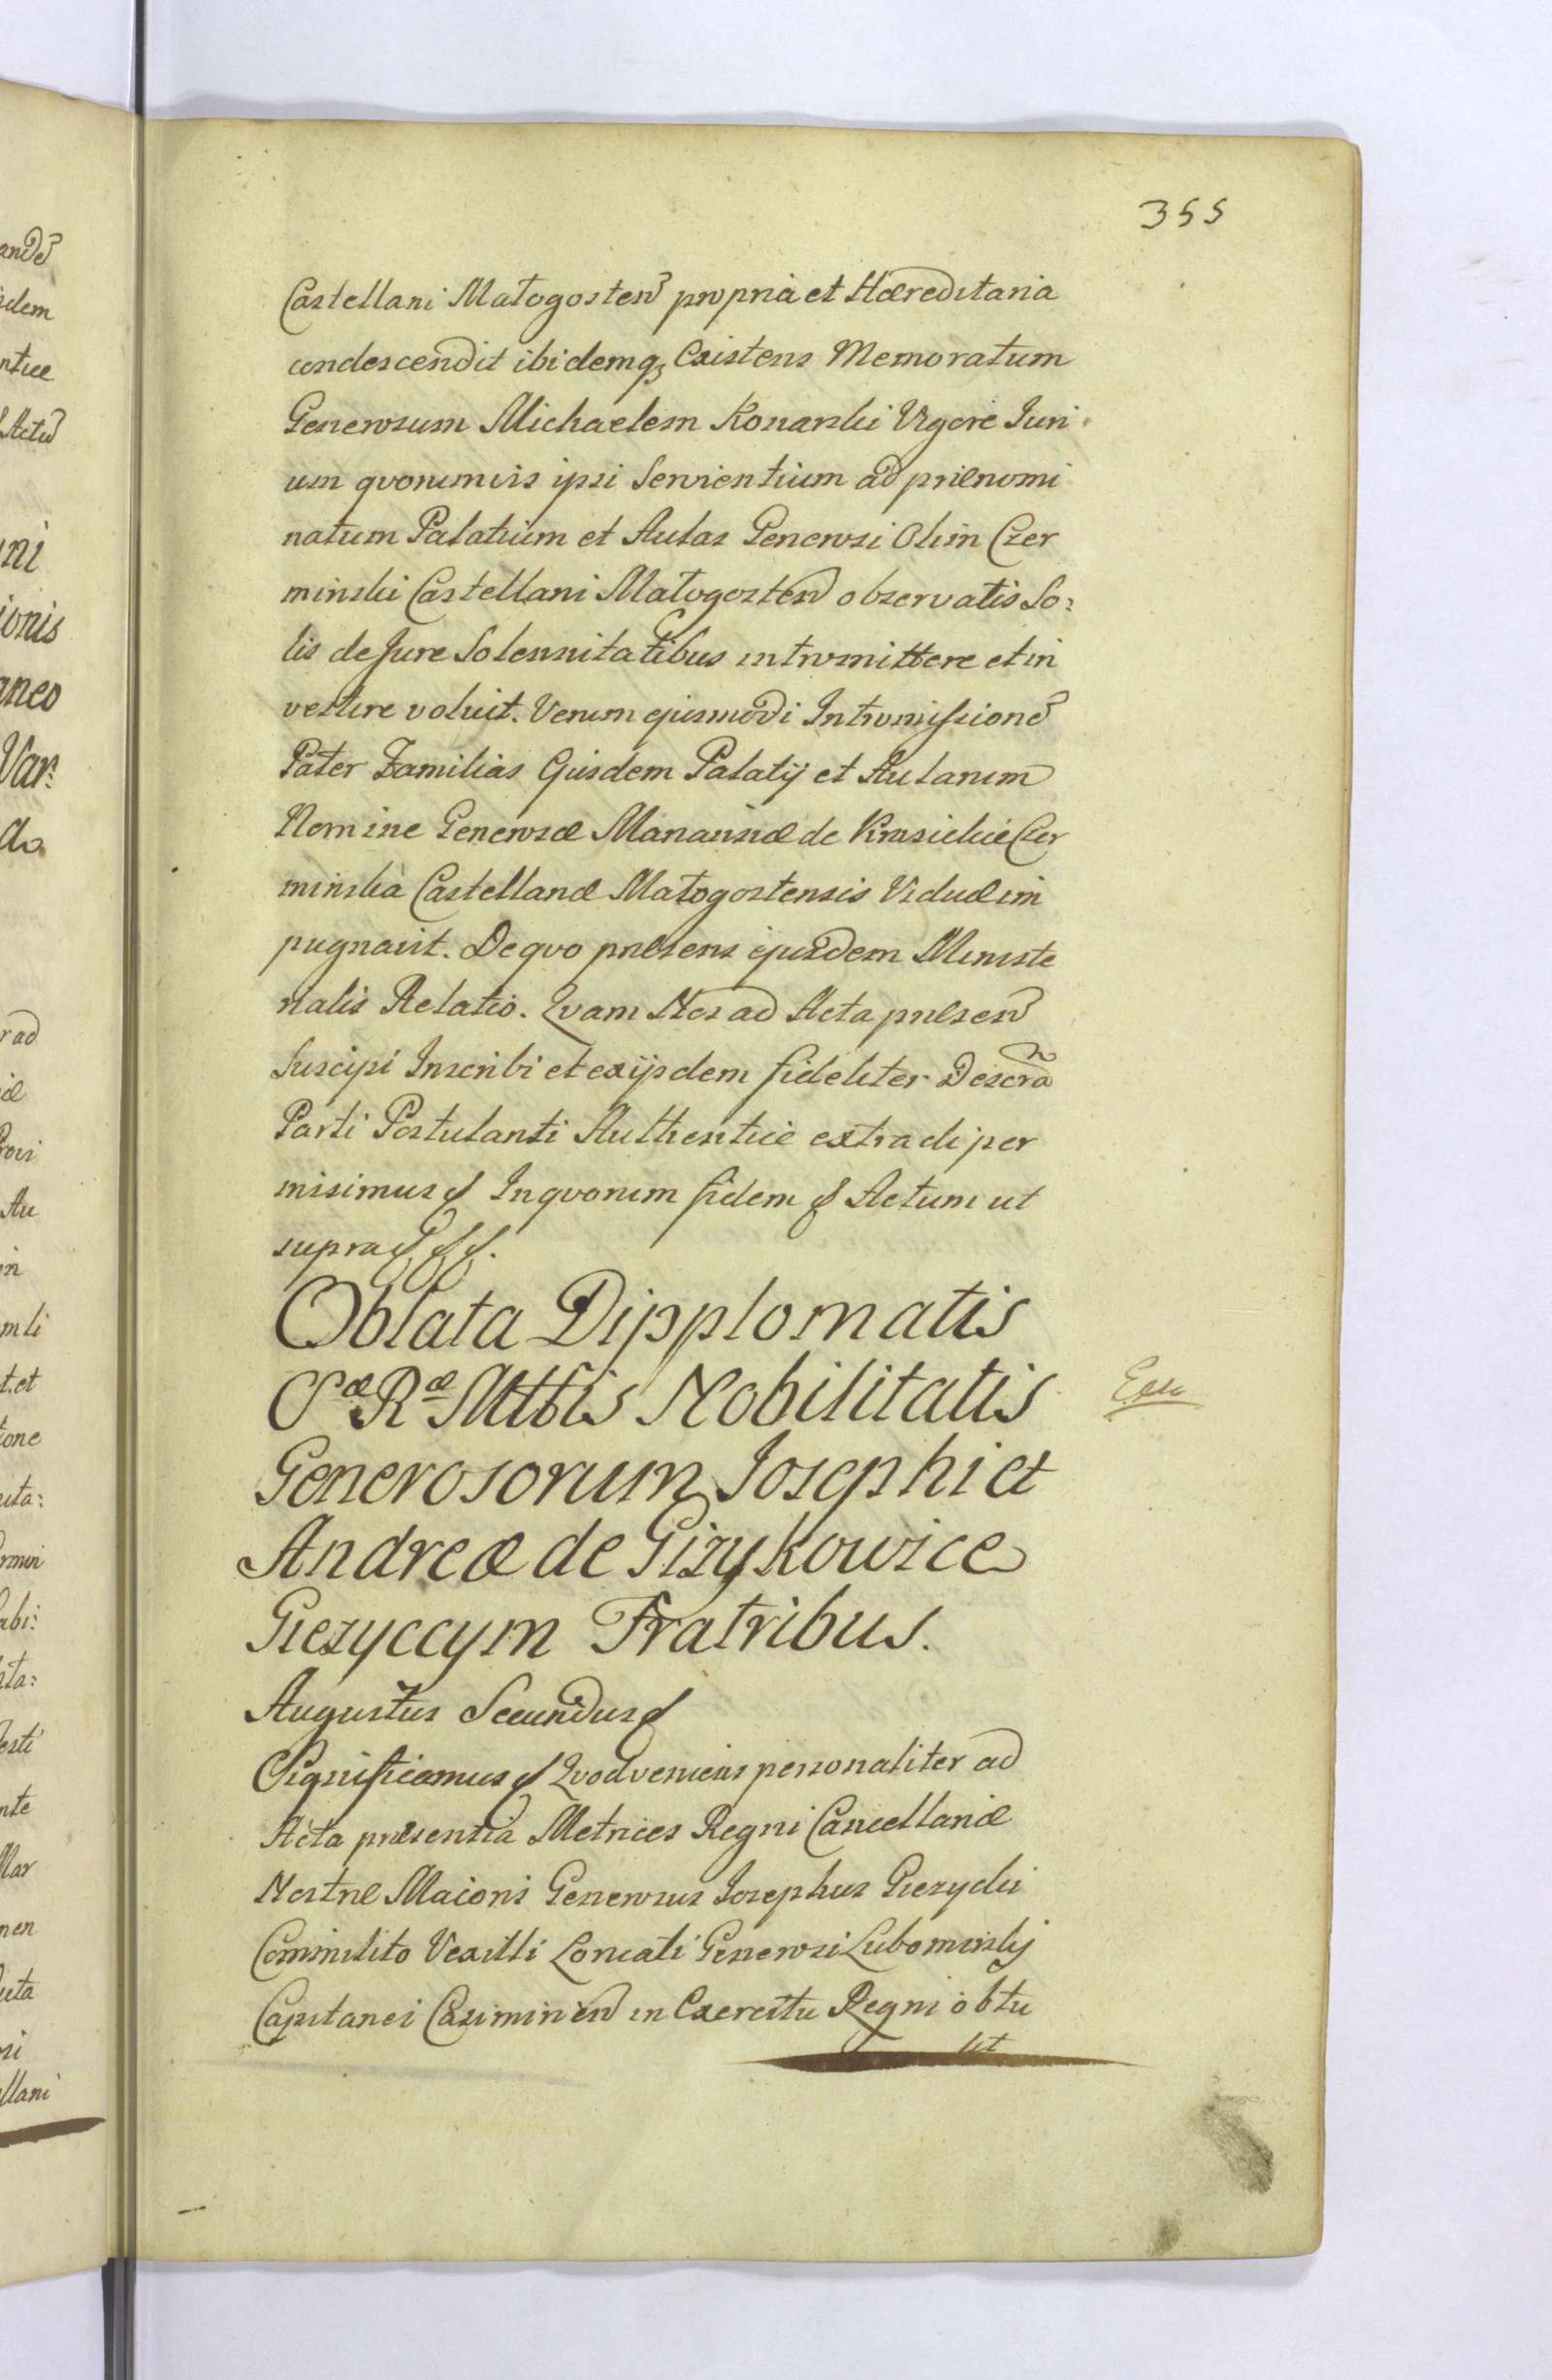 355
Castellani Małogosten propria et Hæreditaria
condescendit ibidemq; Existens Memoratum
Generosum Michaelem Konarski Vigore Juri
um qvorumvis ipsi Servientium ad prænomi
natum Palatium et Aulas Generosi Olim Czer
minski Castellani Małogosten observatis So:
lis de Jure Solennitatibus intromittere et in
vestire voluit. Verum ejusmodi Intromissione
Pater Familias Ejusdem Palatij et Aularum
Nomine Generosæ Mariannæ de Krasickie Czer
minska Castellanæ Małogostensis Viduæ im
pugnavit. De qvo præsens ejusdem Ministe
rialis Relatio. Qvam Nos ad Acta præsen
Suscipi Inscribi et ex ijsdem fideliter Descra
Parti Postulanti Authentice extradi per
misimus & In qvorum fidem & Actum ut
supra & & &.
Oblata Dipplomatis
Sæ Ræ Mttis Nobilitatis
Generosorum Josephi et
Andreæ de Gizykowice
Giezyccym Fratribus.
Augustus Secundus &
Significamus & Qvod veniens personaliter ad
Acta præsentia Metrices Regni Cancellariæ
Nostræ Maioris Generosus Josephus Giezycki
Commilito Vexilli Loricati Generosi Lubomirskj
Capitanei Casimirien in Exercitu Regni obtu
lit